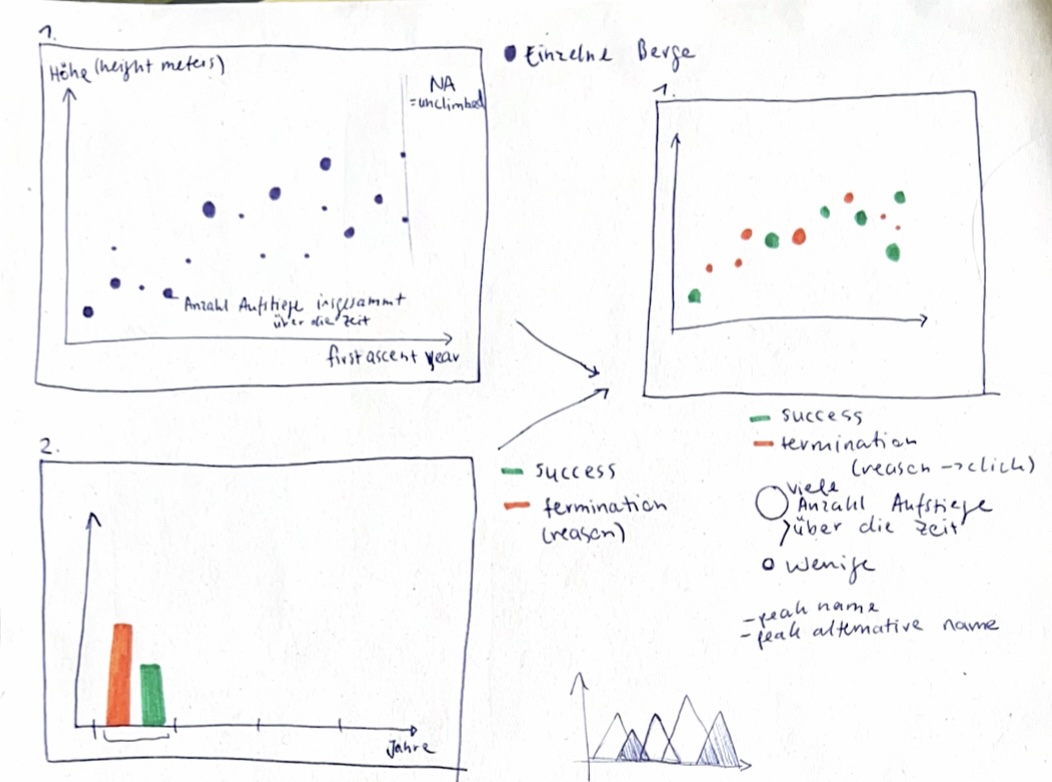 1.
Höhe (height meters)
NA
=unclimbed
Anzahl Aufstiege insgesammt
über die Zeit
first ascent year
Einzelne Berge
1.
success
termination
(reason → click)
viele
Anzahl Aufstiege
über die Zeit
wenige
- peak name
- peak alternative name
2.
Jahre
success
termination
(reason)